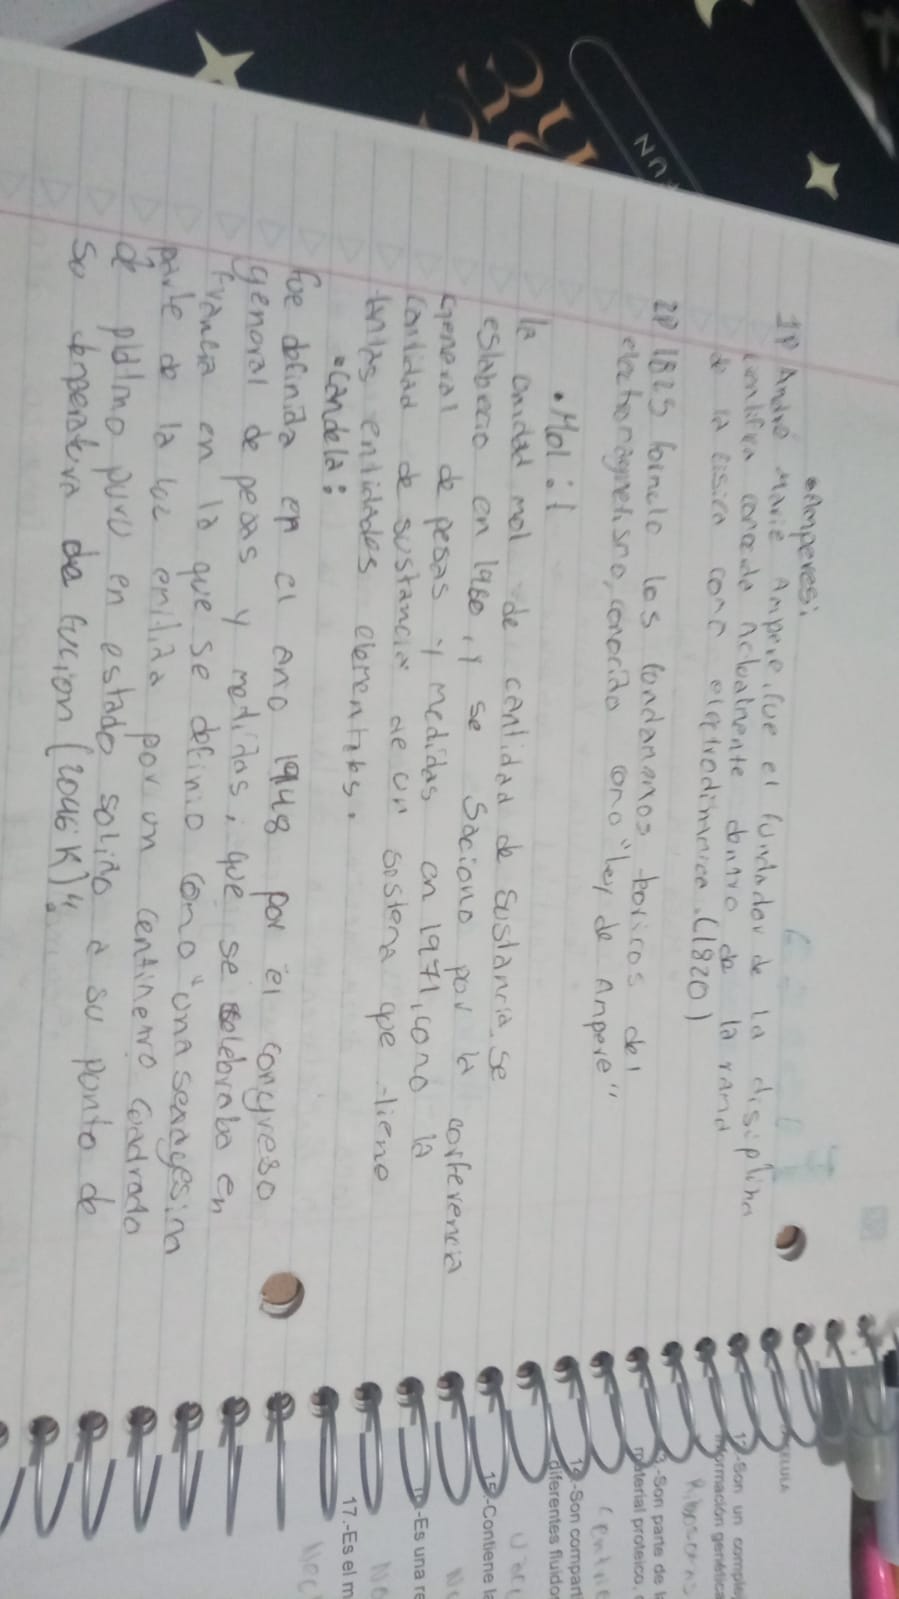 •Amperes:
1º André Marie Ampere, fue el fundador de la disiplina
cientifica conocida Actualmente dentro de la rama
de la fisica como eletrodimamica. (1820)
2º 1825 formulo los fundamenos toricos del
electromagnetismo, conocido como "ley de Ampere"
•Mol:
la unidad mol de cantidad de sustancia se
establecio en 1960, y se Saciono por la conferencia
General de pesas y medidas en 1971, como la
Cantidad de sustancia de un sistema que tiene
tantas entidades elementales.
•Candela:
fue definida en el año 1948 por el congreso
general de pesas y medidas, que se selebraba en
francia en la que se definio como "una sexagesima
parte de la luz emitida por un centimetro cuadrado
de platino puro en estado solido a su punto de
su temperatura de fucion (2046 K)".
CELULA
-Son un complej
formación genética
Ribosomas
-Son parte de l
material proteico,
Centrio
-Son compart
diferentes fluido
15.-Contiene la
-Es una re
17.-Es el m